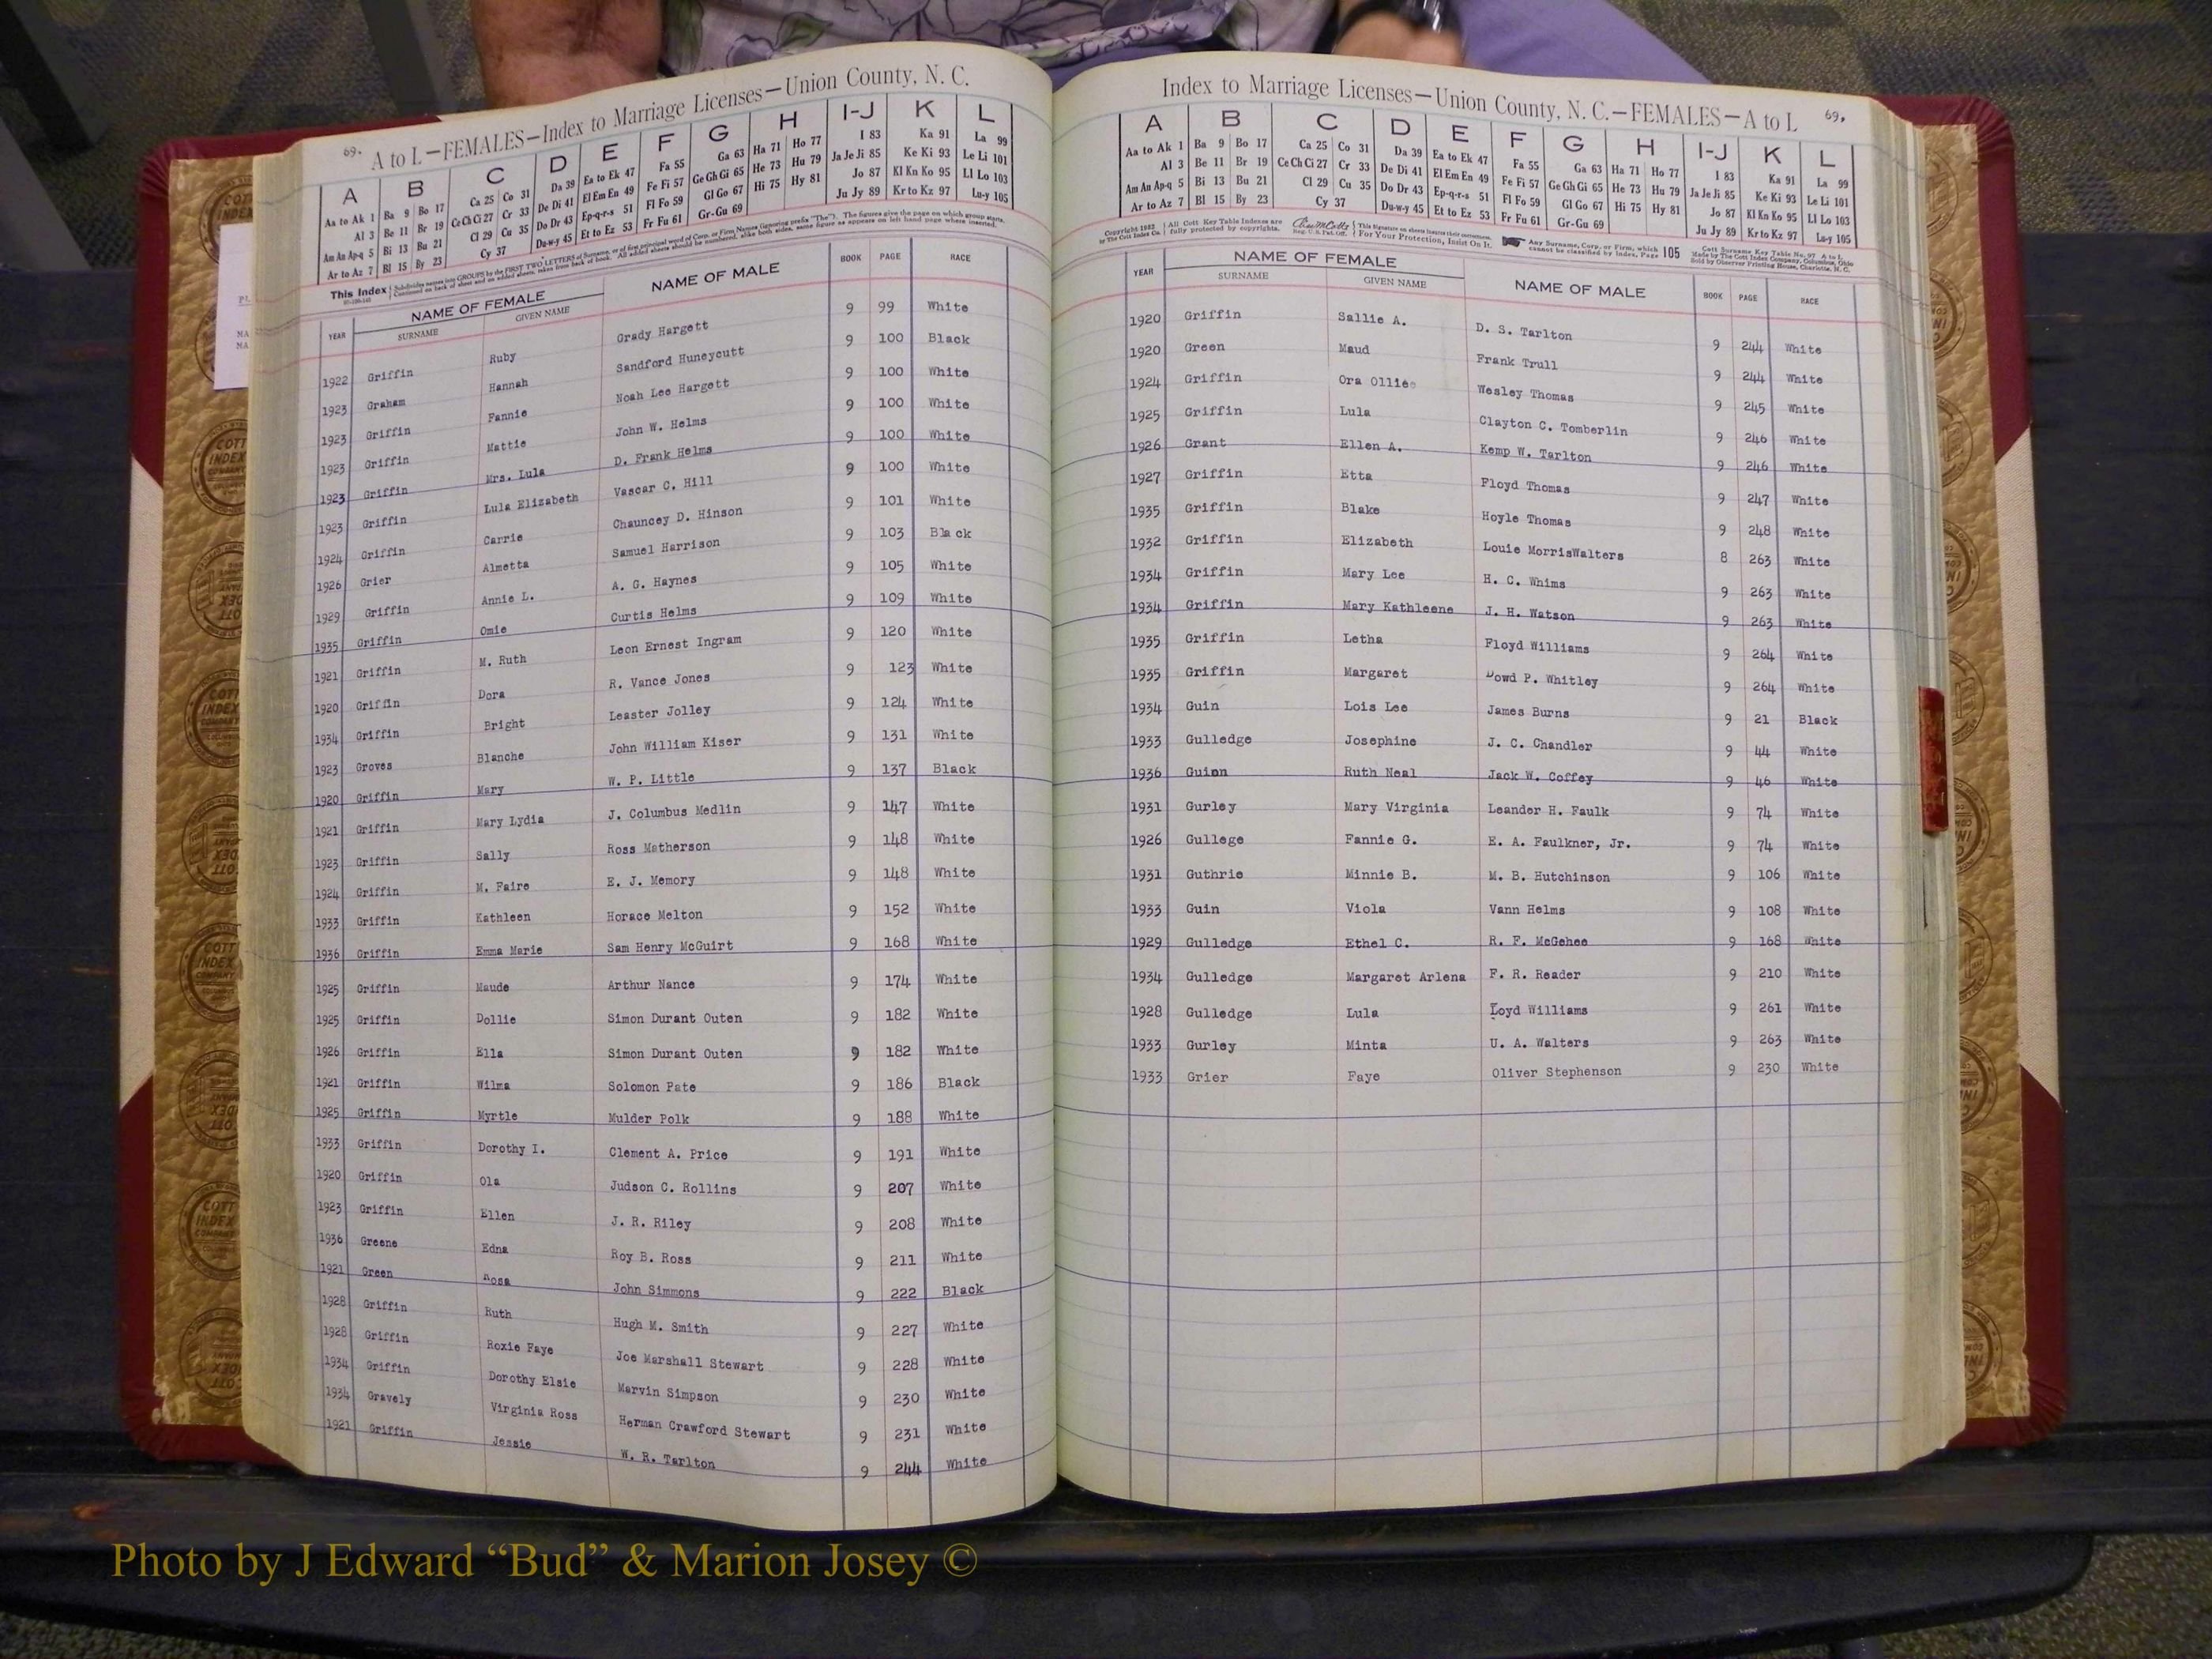 69. A to L—FEMALES—Index to Marriage Licenses—Union County, N. C.
A B C D E F G H I-J K L
Aa to Ak 1 Ba 9 Bo 17 Ca 25 Co 31 Da 39 Ea to Ek 47 Fa 55 Ga 63 Ha 71 Ho 77 I 83 Ka 91 La 99
Al 3 Be 11 Br 19 Ce Ch Ci 27 Cr 33 De Di 41 El Em En 49 Fe Fi 57 Ge Gh Gi 65 He 73 Hu 79 Ja Je Ji 85 Ke Ki 93 Le Li 101
Am An Ap-q 5 Bi 13 Bu 21 Cl 29 Cu 35 Do Dr 43 Ep-q-r-s 51 Fl Fo 59 Gl Go 67 Hi 75 Hy 81 Jo 87 Kl Kn Ko 95 Ll Lo 103
Ar to Az 7 Bl 15 By 23 Cy 37 Du-w-y 45 Et to Ez 53 Fr Fu 61 Gr-Gu 69 Ju Jy 89 Kr to Kz 97 Lu-y 105
This Index Subdivides names into GROUPS by the FIRST TWO LETTERS of Surname, or of first principal word of Corp. or Firm Names (ignoring prefix "The"). The figures give the page on which group starts.
Continued on back of sheet and on added sheets, taken from back of book. All added sheets should be numbered, alike both sides, same figure as appears on left hand page where inserted.
YEAR NAME OF FEMALE NAME OF MALE BOOK PAGE RACE
SURNAME GIVEN NAME
1922 Griffin Ruby Grady Hargett 9 99 White
1923 Graham Hannah Sandford Huneycutt 9 100 Black
1923 Griffin Fannie Noah Lee Hargett 9 100 White
1923 Griffin Mattie John W. Helms 9 100 White
1923 Griffin Mrs. Lula D. Frank Helms 9 100 White
1923 Griffin Lula Elizabeth Vascar C. Hill 9 100 White
1924 Griffin Carrie Chauncey D. Hinson 9 101 White
1926 Grier Almetta Samuel Harrison 9 103 Black
1929 Griffin Annie L. A. G. Haynes 9 105 White
1935 Griffin Omie Curtis Helms 9 109 White
1921 Griffin M. Ruth Leon Ernest Ingram 9 120 White
1920 Griffin Dora R. Vance Jones 9 123 White
1934 Griffin Bright Leaster Jolley 9 124 White
1923 Groves Blanche John William Kiser 9 131 White
1920 Griffin Mary W. P. Little 9 137 Black
1921 Griffin Mary Lydia J. Columbus Medlin 9 147 White
1923 Griffin Sally Ross Matherson 9 148 White
1924 Griffin M. Faire E. J. Memory 9 148 White
1933 Griffin Kathleen Horace Melton 9 152 White
1936 Griffin Emma Marie Sam Henry McGuirt 9 168 White
1925 Griffin Maude Arthur Nance 9 174 White
1925 Griffin Dollie Simon Durant Outen 9 182 White
1926 Griffin Ella Simon Durant Outen 9 182 White
1921 Griffin Wilma Solomon Pate 9 186 Black
1925 Griffin Myrtle Mulder Polk 9 188 White
1933 Griffin Dorothy I. Clement A. Price 9 191 White
1920 Griffin Ola Judson C. Rollins 9 207 White
1923 Griffin Ellen J. R. Riley 9 208 White
1936 Greene Edna Roy B. Ross 9 211 White
1921 Green Rosa John Simmons 9 222 Black
1928 Griffin Ruth Hugh M. Smith 9 227 White
1928 Griffin Roxie Faye Joe Marshall Stewart 9 228 White
1934 Griffin Dorothy Elsie Marvin Simpson 9 230 White
1934 Gravely Virginia Ross Herman Crawford Stewart 9 231 White
1921 Griffin Jessie W. R. Tarlton 9 244 White
Index to Marriage Licenses—Union County, N. C.—FEMALES—A to L 69.
A B C D E F G H I-J K L
Aa to Ak 1 Ba 9 Bo 17 Ca 25 Co 31 Da 39 Ea to Ek 47 Fa 55 Ga 63 Ha 71 Ho 77 I 83 Ka 91 La 99
Al 3 Be 11 Br 19 Ce Ch Ci 27 Cr 33 De Di 41 El Em En 49 Fe Fi 57 Ge Gh Gi 65 He 73 Hu 79 Ja Je Ji 85 Ke Ki 93 Le Li 101
Am An Ap-q 5 Bi 13 Bu 21 Cl 29 Cu 35 Do Dr 43 Ep-q-r-s 51 Fl Fo 59 Gl Go 67 Hi 75 Hy 81 Jo 87 Kl Kn Ko 95 Ll Lo 103
Ar to Az 7 Bl 15 By 23 Cy 37 Du-w-y 45 Et to Ez 53 Fr Fu 61 Gr-Gu 69 Ju Jy 89 Kr to Kz 97 Lu-y 105
All Cott Key Table Indexes are fully protected by copyrights. This Signature on sheets insures their correctness. For Your Protection, Insist On It. Any Surname, Corp. or Firm, which cannot be classified by Index, Page 105
Made by The Cott Index Company, Columbus, Ohio
Sold by Observer Printing House, Charlotte, N. C.
YEAR NAME OF FEMALE NAME OF MALE BOOK PAGE RACE
SURNAME GIVEN NAME
1920 Griffin Sallie A. D. S. Tarlton 9 244 White
1920 Green Maud Frank Trull 9 244 White
1924 Griffin Ora Olliee Wesley Thomas 9 245 White
1925 Griffin Lula Clayton C. Tomberlin 9 246 White
1926 Grant Ellen A. Kemp W. Tarlton 9 246 White
1927 Griffin Etta Floyd Thomas 9 247 White
1935 Griffin Blake Hoyle Thomas 9 248 White
1932 Griffin Elizabeth Louie MorrisWalters 8 263 White
1934 Griffin Mary Lee H. C. Whims 9 263 White
1934 Griffin Mary Kathleene J. H. Watson 9 263 White
1935 Griffin Letha Floyd Williams 9 264 White
1935 Griffin Margaret Dowd P. Whitley 9 264 White
1934 Guin Lois Lee James Burns 9 21 Black
1933 Gulledge Josephine J. C. Chandler 9 44 White
1936 Guion Ruth Neal Jack W. Coffey 9 46 White
1931 Gurley Mary Virginia Leander H. Faulk 9 74 White
1926 Gullege Fannie G. E. A. Faulkner, Jr. 9 74 White
1931 Guthrie Minnie B. M. B. Hutchinson 9 106 White
1933 Guin Viola Vann Helms 9 108 White
1929 Gulledge Ethel C. R. F. McGehee 9 168 White
1934 Gulledge Margaret Arlena F. R. Reader 9 210 White
1928 Gulledge Lula Loyd Williams 9 261 White
1933 Gurley Minta U. A. Walters 9 263 White
1933 Grier Faye Oliver Stephenson 9 230 White
Photo by J Edward “Bud” & Marion Josey ©